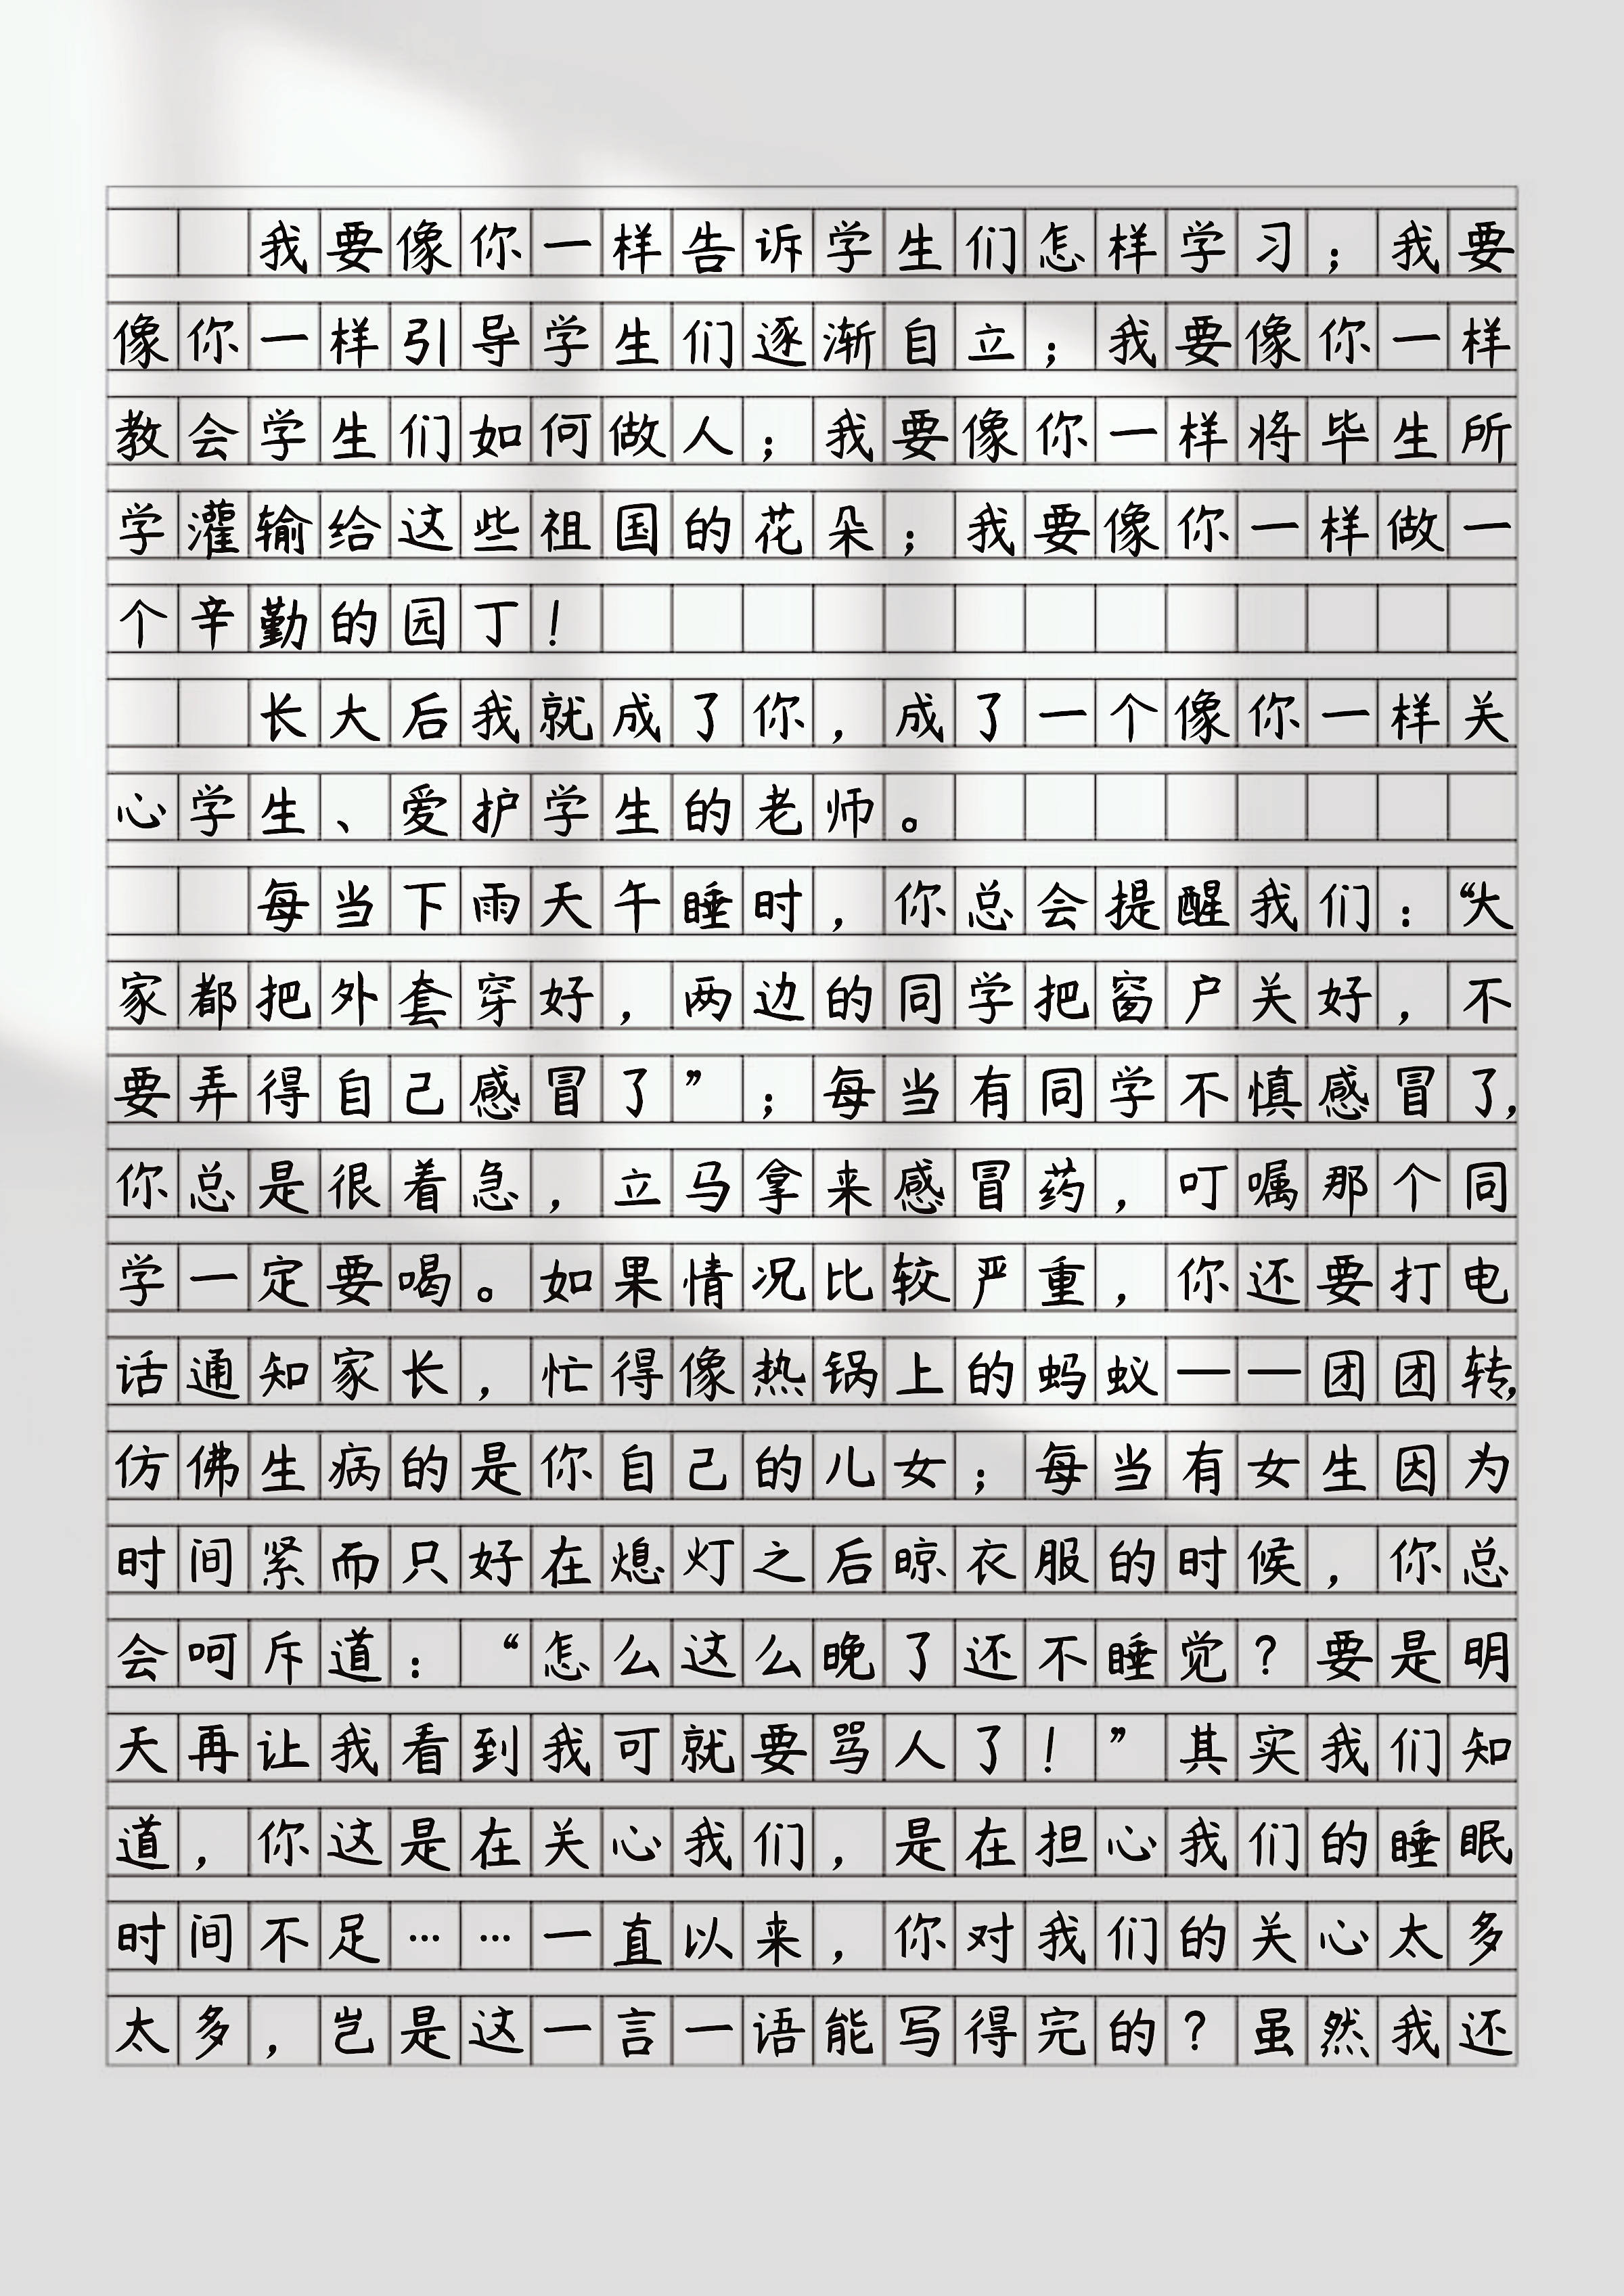 我要像你一样告诉学生们怎样学习；我要
像你一样引导学生们逐渐自立；我要像你一样
教会学生们如何做人；我要像你一样将毕生所
学灌输给这些祖国的花朵；我要像你一样做一
个辛勤的园丁！
长大后我就成了你，成了一个像你一样关
心学生、爱护学生的老师。
每当下雨天午睡时，你总会提醒我们：“大
家都把外套穿好，两边的同学把窗户关好，不
要弄得自己感冒了”；每当有同学不慎感冒了，
你总是很着急，立马拿来感冒药，叮嘱那个同
学一定要喝。如果情况比较严重，你还要打电
话通知家长，忙得像热锅上的蚂蚁——团团转，
仿佛生病的是你自己的儿女；每当有女生因为
时间紧而只好在熄灯之后晾衣服的时候，你总
会呵斥道：“怎么这么晚了还不睡觉？要是明
天再让我看到我可就要骂人了！”其实我们知
道，你这是在关心我们，是在担心我们的睡眠
时间不足……一直以来，你对我们的关心太多
太多，岂是这一言一语能写得完的？虽然我还